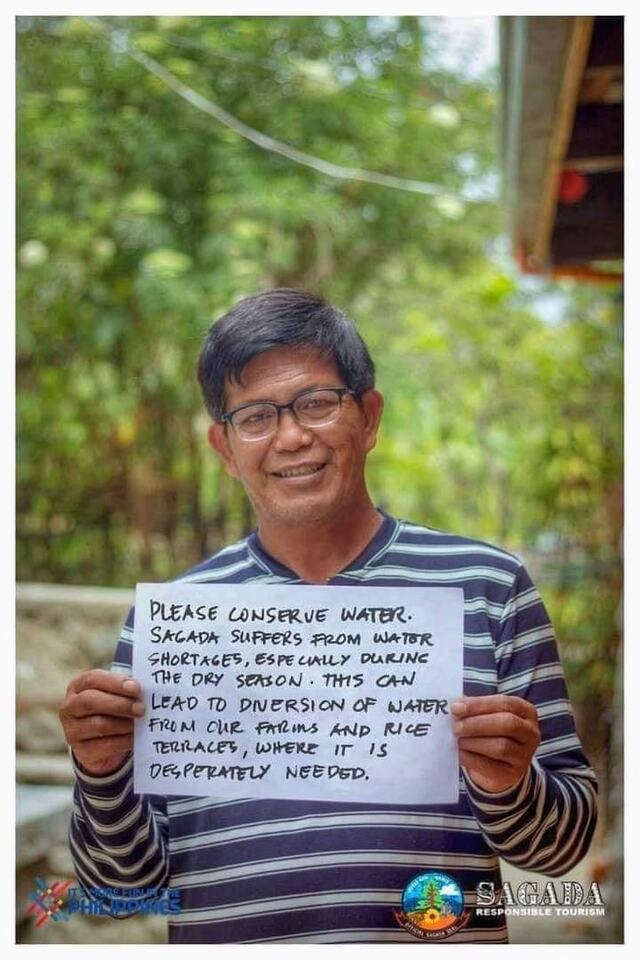 PLEASE CONSERVE WATER.
SAGADA SUFFERS FROM WATER
SHORTAGES, ESPECIALLY DURING
THE DRY SEASON. THIS CAN
LEAD TO DIVERSION OF WATER
FROM OUR FARMS AND RICE
TERRACES, WHERE IT IS
DESPERATELY NEEDED.
IT'S MORE FUN IN THE
PHILIPPINES
OFFICIAL SAGADA SEAL
SAGADA
RESPONSIBLE TOURISM